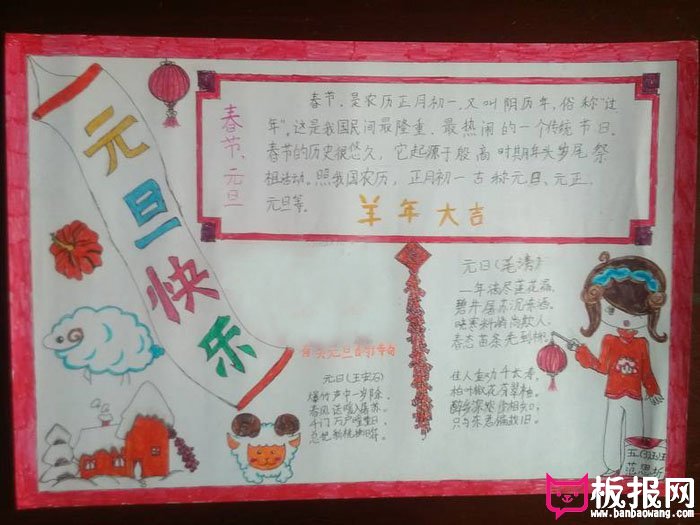 元旦快乐
春节、元旦
春节，是农历正月初一，又叫阴历年，俗称“过
年”。这是我国民间最隆重、最热闹的一个传统节日。
春节的历史很悠久，它起源于殷商时期年头岁尾祭
祖活动。照我国农历，正月初一古称元日、元正、
元旦等。
羊年大吉
元日(毛滂)
一年滴尽莲花漏。
碧井屠苏沉冻酒。
晓寒料峭尚欺人，
春态苗条先到柳。
佳人重劝千长寿，
柏叶椒花芬翠袖。
醉乡深处少相知，
只与东君偏故旧。
有关元旦的
元日(王安石)
爆竹声中一岁除，
春风送暖入屠苏。
千门万户曈曈日，
总把新桃换旧符。
板报网
www.banbaowang.com